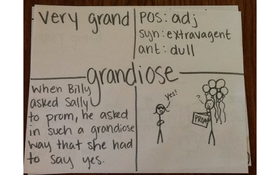 very grand
pos: adj
syn: extravagent
ant: dull
grandiose
When Billy
asked Sally
to prom, he asked
in such a grandiose
way that she had
to say yes.
yes!
PROM